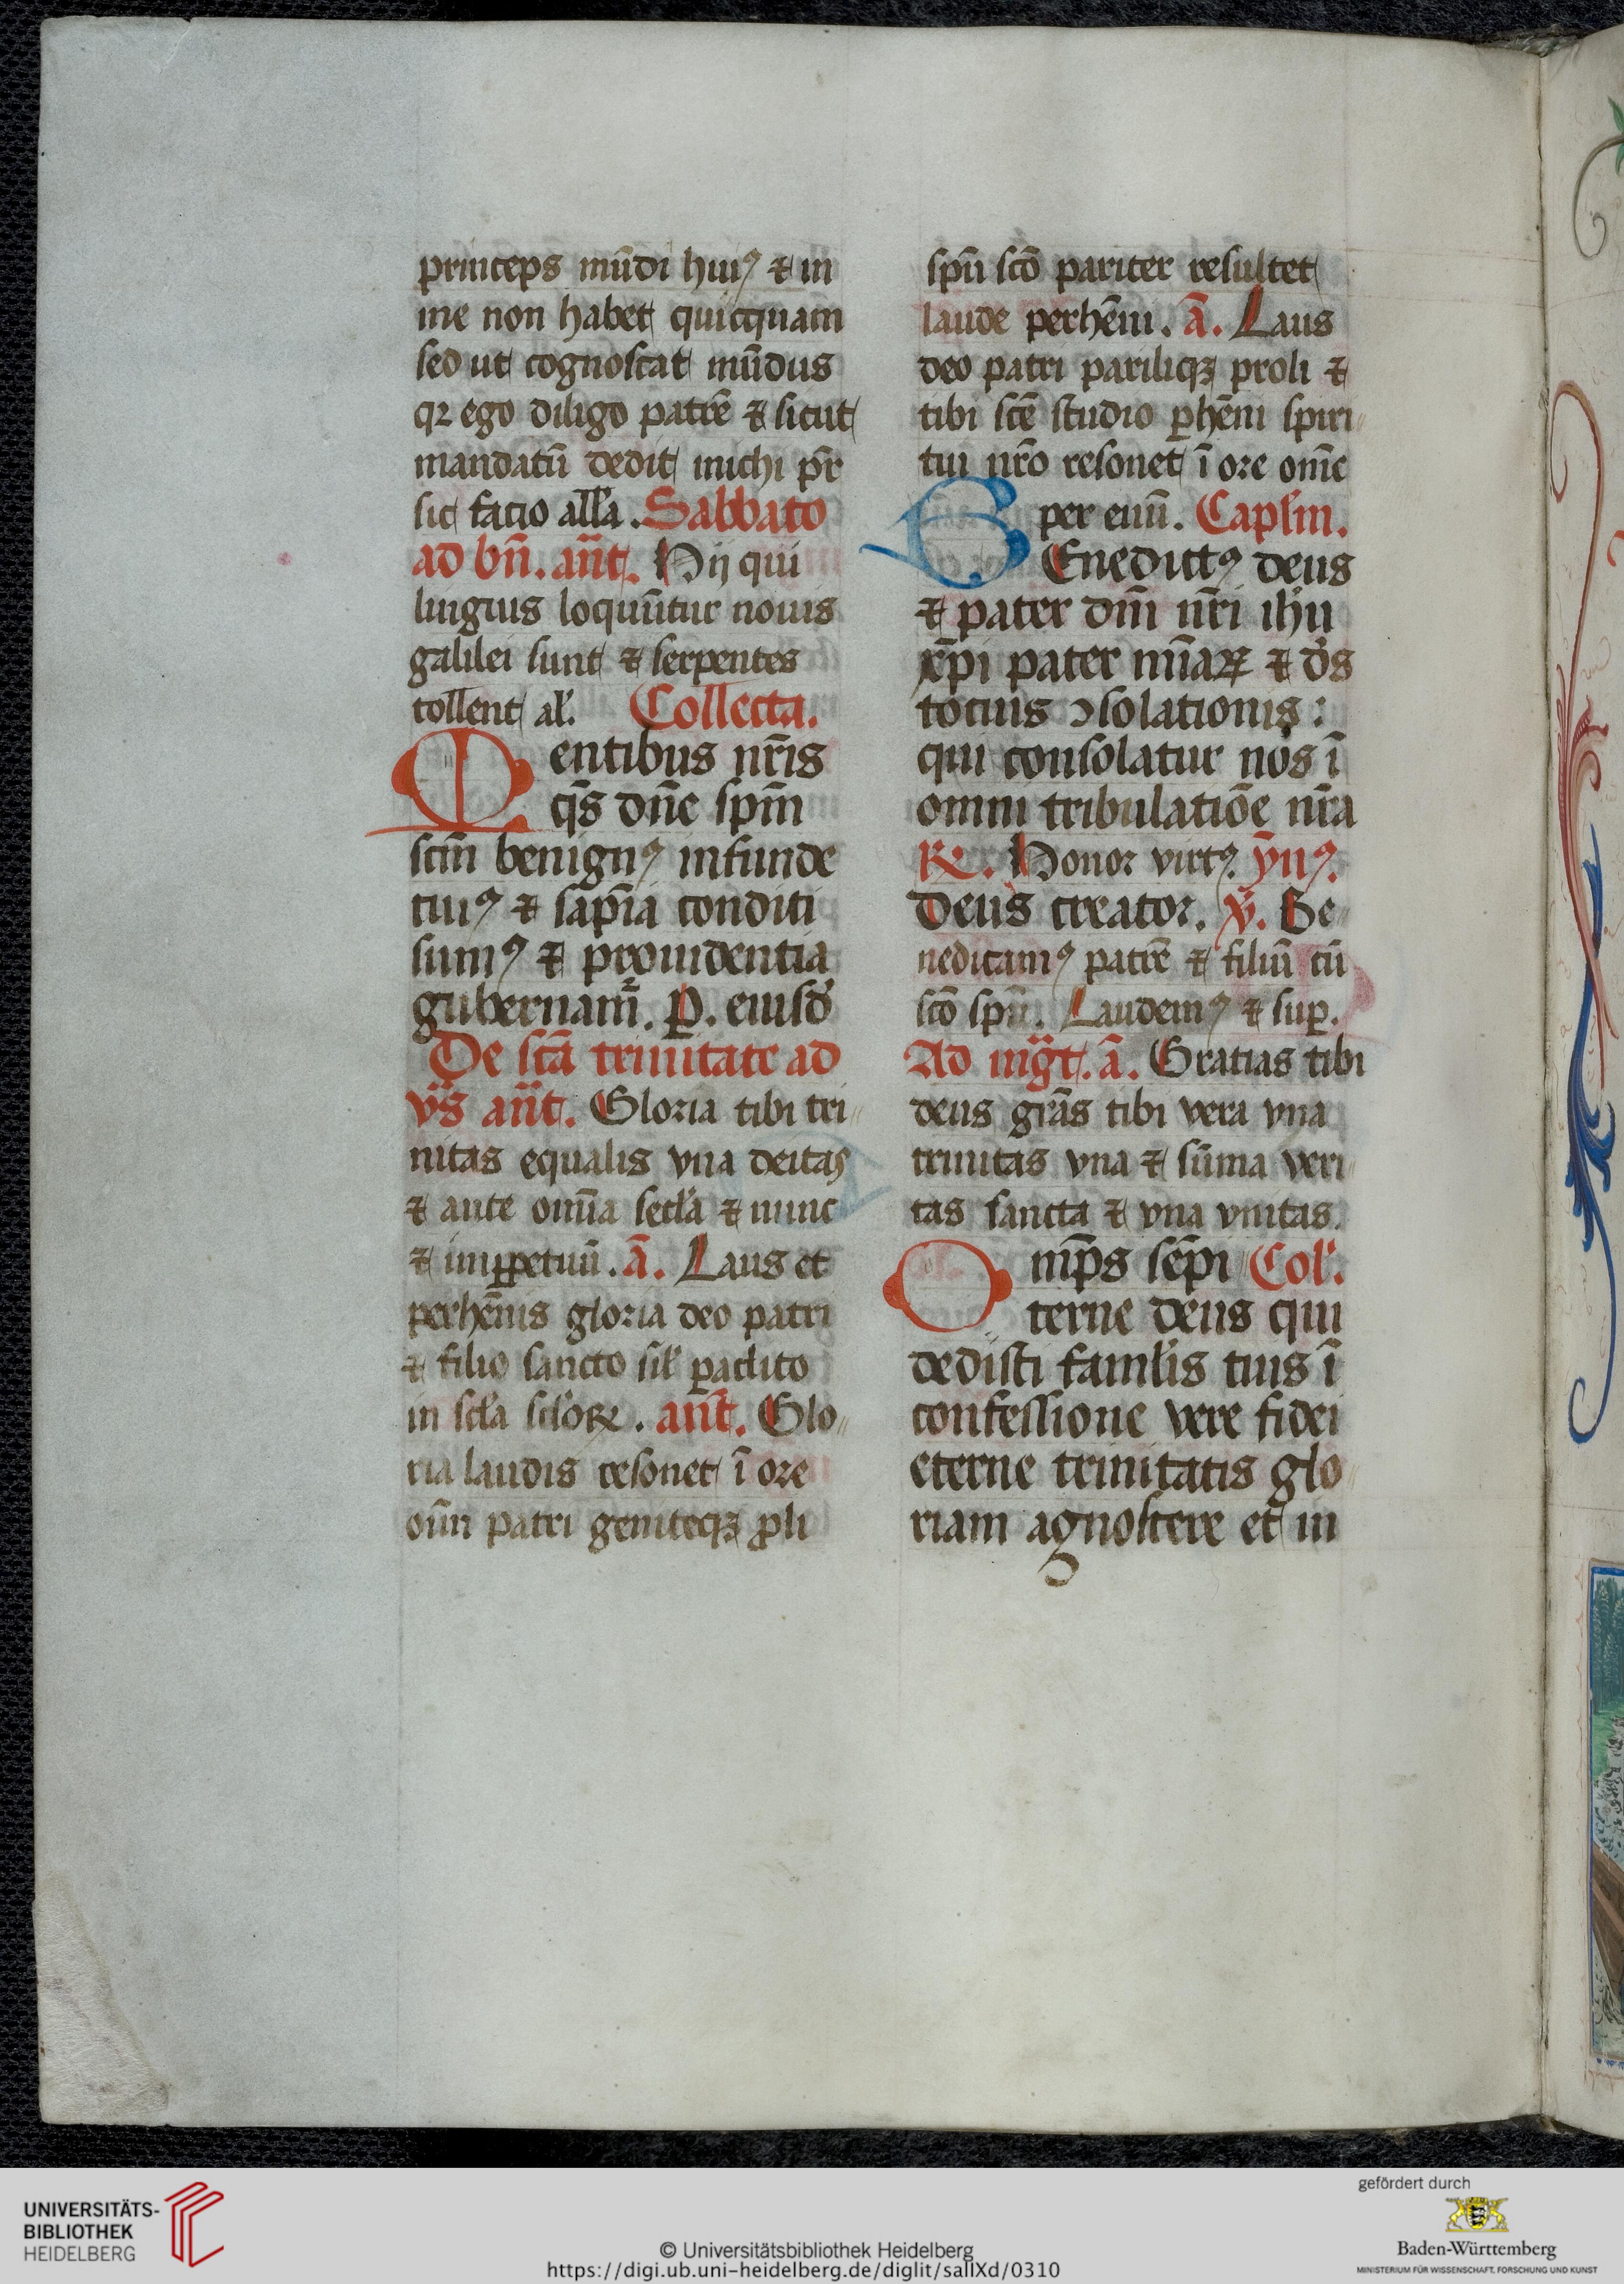 princeps mūdi huiꝰ ⁊ in
me non habet quicquam
sed ut cognoscat mūdus
qꝛ ego diligo patrē ⁊ sicut
mandatū dedit michi pr̄
sic facio all̓a. Sabbato
ad bn̄. an̄t. Hij qui
linguis loquūtur nouis
galilei sunt ⁊ serpentes
tollent al̓. Collecta.
Mentibus nr̄is
qs̄ dn̄e spm̄
scm̄ benignꝰ infunde
cuiꝰ ⁊ sapīa conditi
sumꝰ ⁊ prouidentia
gubernamᷣ. P. eiusd̓
De scā trinitate ad
vs̄ an̄t. Gloria tibi tri
nitas equalis vna deitas
⁊ ante omīa secl̓a ⁊ nunc
⁊ imꝑpetuū. ā. Laus et
perhēnis gloria deo patri
⁊ filio sancto sil̓ ꝑaclito
in scl̓a scl̓oꝝ. an̄t. Glo
ria laudis resonet ī ore
oīm patri geniteqꝫ ꝓli
spū scō pariter resultet
laude perhēni. ā. Laus
deo patri pariliqꝫ proli ⁊
tibi scē studio ꝑhēni spiri
tui nr̄o resonet ī ore om̄e
per euū. Capl̓m.
BEnedictꝰ deus
⁊ pater dn̄i nr̄i ihū
xp̄i pater mīaꝝ ⁊ d̓s
tocius ꝯsolationis:
qui consolatur nos ī
omni tribulatiōe nr̄a
R. Honor virtꝰ. ynꝰ.
Deus creator. V̓. Be
nedicamꝰ patrē ⁊ filiū cū
scō spū. Laudemꝰ ⁊ suꝑ.
Ad mgt̄. ā. Gratias tibi
deus grās tibi vera vna
trinitas vna ⁊ sūma veri
tas sancta ⁊ vna vnitas.
Omp̄s sēpi Col̓.
terne deus qui
dedisti famul̓is tuis ī
confessione vere fidei
eterne trinitatis glo
riam agnoscere et in
UNIVERSITÄTS-
BIBLIOTHEK
HEIDELBERG
© Universitätsbibliothek Heidelberg
https://digi.ub.uni-heidelberg.de/diglit/salIXd/0310
gefördert durch
Baden-Württemberg
MINISTERIUM FÜR WISSENSCHAFT, FORSCHUNG UND KUNST